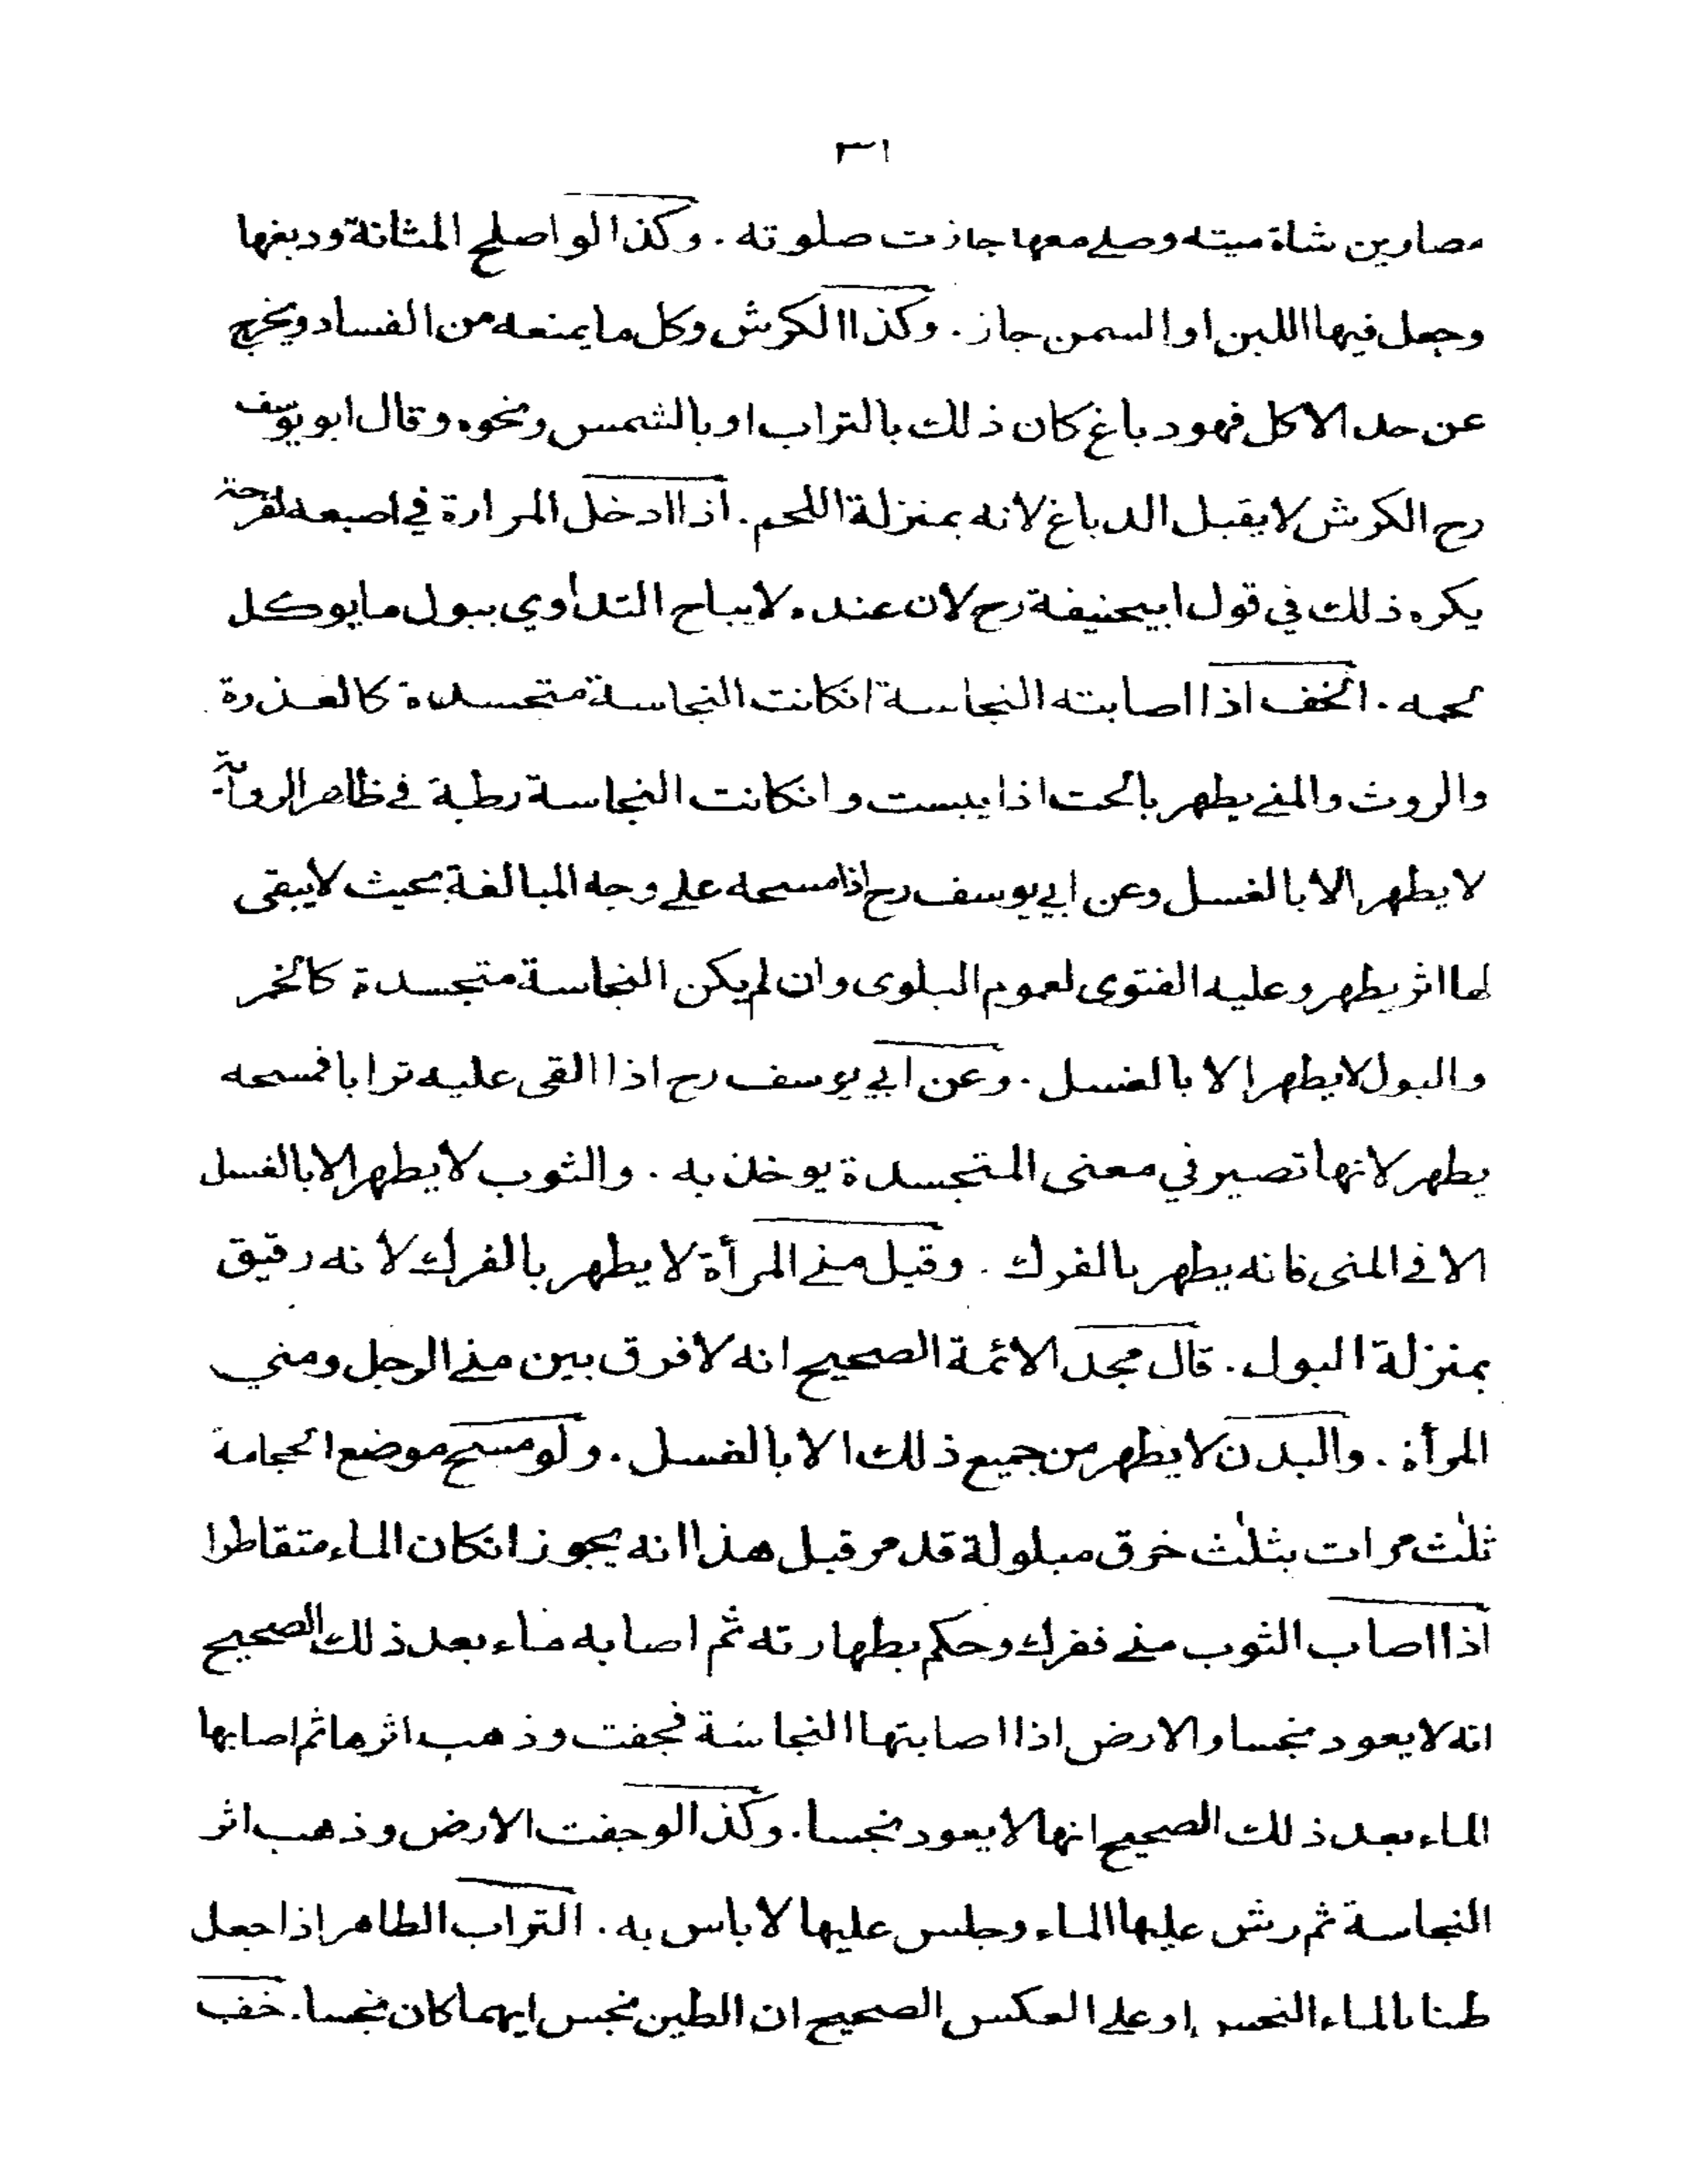 ٣١
مصارين شاة ميته وصلے معها جازت صلوته . وكذا لو اصلح المثانة ودبغها
وجعل فيها اللبن او السمن جاز . وكذا الكرش وكل ما يمنعه من الفساد ويخرج
عن حد الاكل فهو دباغ كان ذلك بالتراب او بالشمس ونحوه وقال ابو يوسف
رح الكرش لا يقبل الدباغ لانه بمنزلة اللحم . اذا ادخل المرارة في اصبعه لقرحة
يكره ذلك في قول ابيحنيفة رح لان عنده لا يباح التداوي ببول ما يوكل
لحمه . الخف اذا اصابته النجاسة انكانت النجاسة متجسدة كالعذرة
والروث والمنے يطهر بالحت اذا يبست وانكانت النجاسة رطبة في ظاهر الرواية
لا يطهر الا بالغسل وعن ابي يوسف رح اذا مسحه علے وجه المبالغة بحيث لا يبقى
لها اثر يطهر وعليه الفتوى لعموم البلوى وان لم يكن النجاسة متجسدة كالخمر
والبول لا يطهر الا بالغسل . وعن ابي يوسف رح اذا القى عليه ترابا فمسحه
يطهر لانها تصير في معنى المتجسدة يوخذ به . والثوب لا يطهر الا بالغسل
الا في المنى فانه يطهر بالفرك . وقيل منے المرأة لا يطهر بالفرك لانه رقيق
بمنزلة البول . قال مجد الائمة الصحيح انه لا فرق بين منے الرجل ومني
المرأة . والبدن لا يطهر من جميع ذلك الا بالغسل . ولو مسح موضع الحجامة
ثلٰث مرات بثلٰث خرق مبلولة قد مر قبل هذا انه يجوز انكان الماء متقاطرا
اذا اصاب الثوب منے ففرك وحكم بطهارته ثم اصابه ماء بعد ذلك الصحيح
انه لا يعود نجسا والارض اذا اصابتها النجاسة فجفت وذهب اثرها ثم اصابها
الماء بعد ذلك الصحيح انها لا يعود نجسا . وكذا لو جفت الارض وذهب اثر
النجاسة ثم رش عليها الماء وجلس عليها لا باس به . التراب الطاهر اذا جعل
طينا بالماء النجس او علے العكس الصحيح ان الطين نجس ايهما كان نجسا . خف